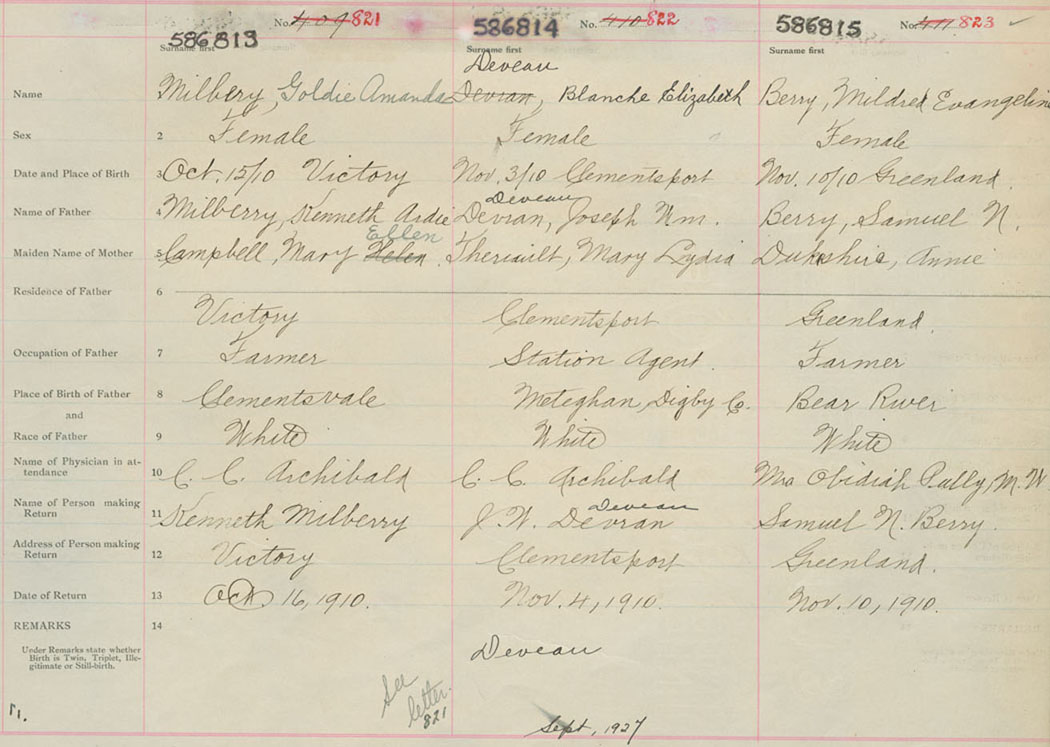 No. 409 821 No. 410 822 No. 411 823
586813 586814 586815
Surname first Surname first Surname first
Deveau
Name Milbery, Goldie Amanda Devran, Blanche Elizabeth Berry, Mildred Evangeline
Sex 2 Female Female Female
Date and Place of Birth 3 Oct. 15/10 Victory Nov. 3/10 Clementsport Nov. 10/10 Greenland.
Deveau
Name of Father 4 Milberry, Kenneth Ardie Devran, Joseph Wm. Berry, Samuel N.
Ellen
Maiden Name of Mother 5 Campbell, Mary Helen Theriault, Mary Lydia Dukshire, Annie
Residence of Father 6
Victory Clementsport Greenland.
Occupation of Father 7 Farmer Station Agent. Farmer
Place of Birth of Father 8 Clementsvale Meteghan, Digby Co. Bear River
and
Race of Father 9 White White White
Name of Physician in at-
tendance 10 C. C. Archibald C. C. Archibald Mrs Obidiah Pully, M. W.
Name of Person making
Deveau
Return 11 Kenneth Milberry J. W. Devran Samuel N. Berry.
Address of Person making
Return 12 Victory Clementsport Greenland.
Date of Return 13 Oct 16, 1910. Nov. 4, 1910. Nov. 10, 1910.
REMARKS 14
Under Remarks state whether
Birth is Twin, Triplet, Ille-
gitimate or Still-birth.
Deveau
See
letter.
821
Sept, 1927